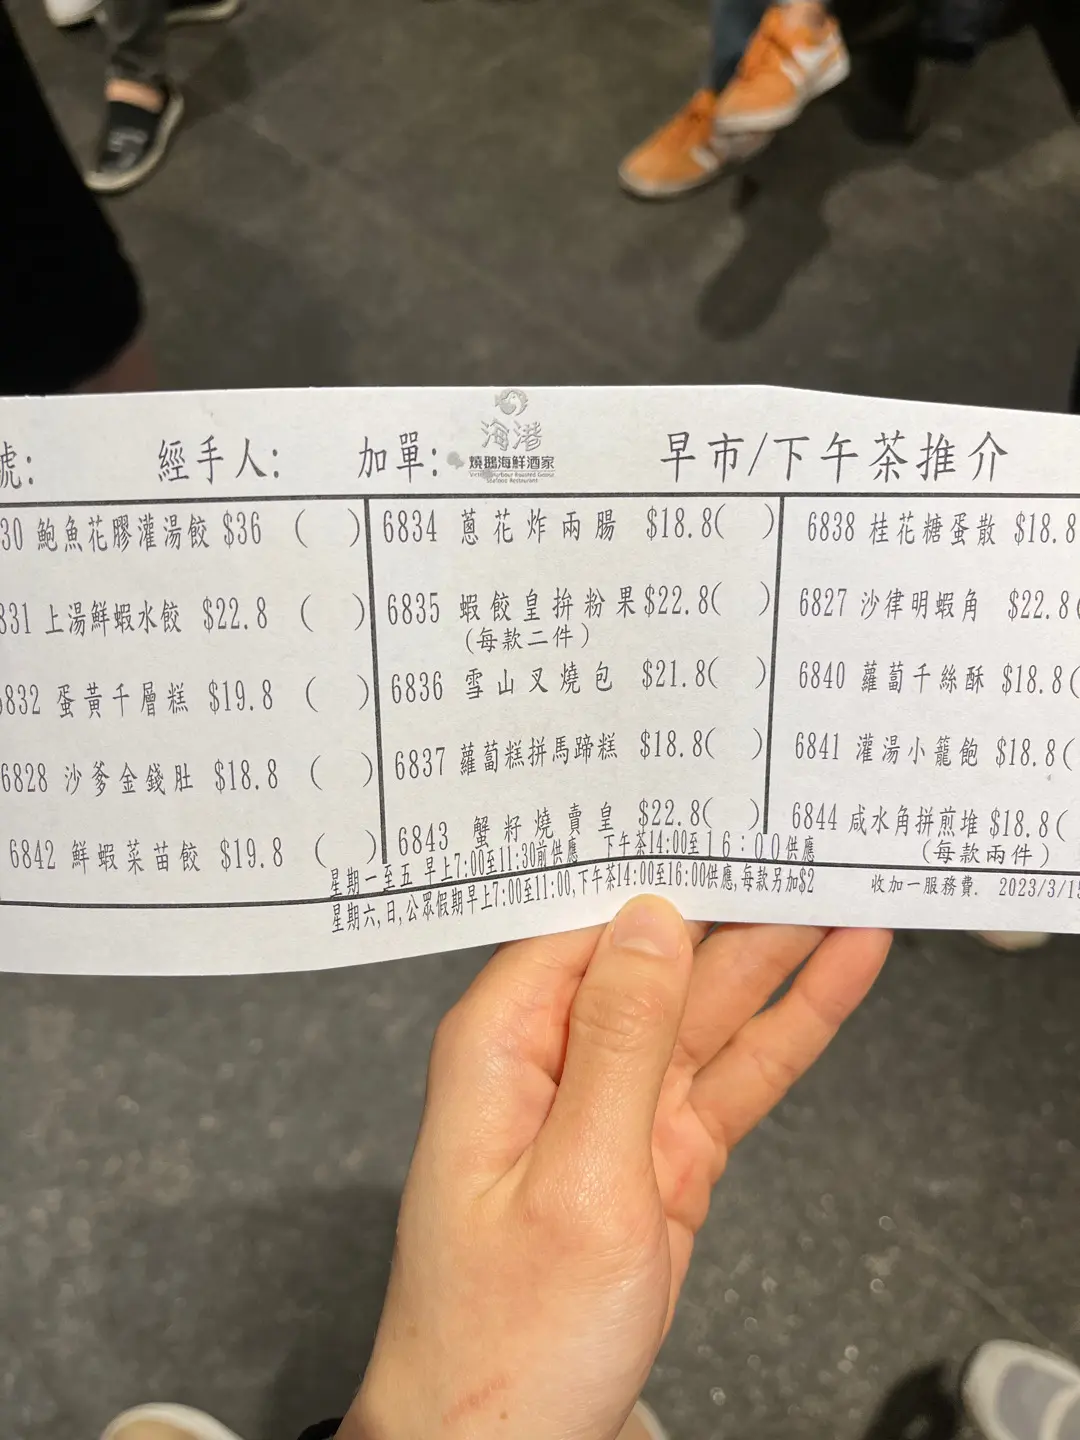 號: 經手人: 加單: 海港 燒鵝海鮮酒家 早市/下午茶推介
Seafood Restaurant
30 鮑魚花膠灌湯餃 $36 ( )
831 上湯鮮蝦水餃 $22.8 ( )
6832 蛋黃千層糕 $19.8 ( )
6828 沙爹金錢肚 $18.8 ( )
6842 鮮蝦菜苗餃 $19.8 ( )
6834 蔥花炸兩腸 $18.8( )
6835 蝦餃皇拚粉果$22.8( )
(每款二件)
6836 雪山叉燒包 $21.8( )
6837 蘿蔔糕拼馬蹄糕 $18.8( )
6843 蟹籽燒賣皇 $22.8( )
6838 桂花糖蛋散 $18.8
6827 沙律明蝦角 $22.8(
6840 蘿蔔千絲酥 $18.8(
6841 灌湯小籠飽 $18.8(
6844 咸水角拼煎堆 $18.8(
(每款兩件)
星期一至五 早上7:00至11:30前供應 下午茶14:00至16:00供應
星期六,日,公眾假期早上7:00至11:00,下午茶14:00至16:00供應,每款另加$2
收加一服務費. 2023/3/15